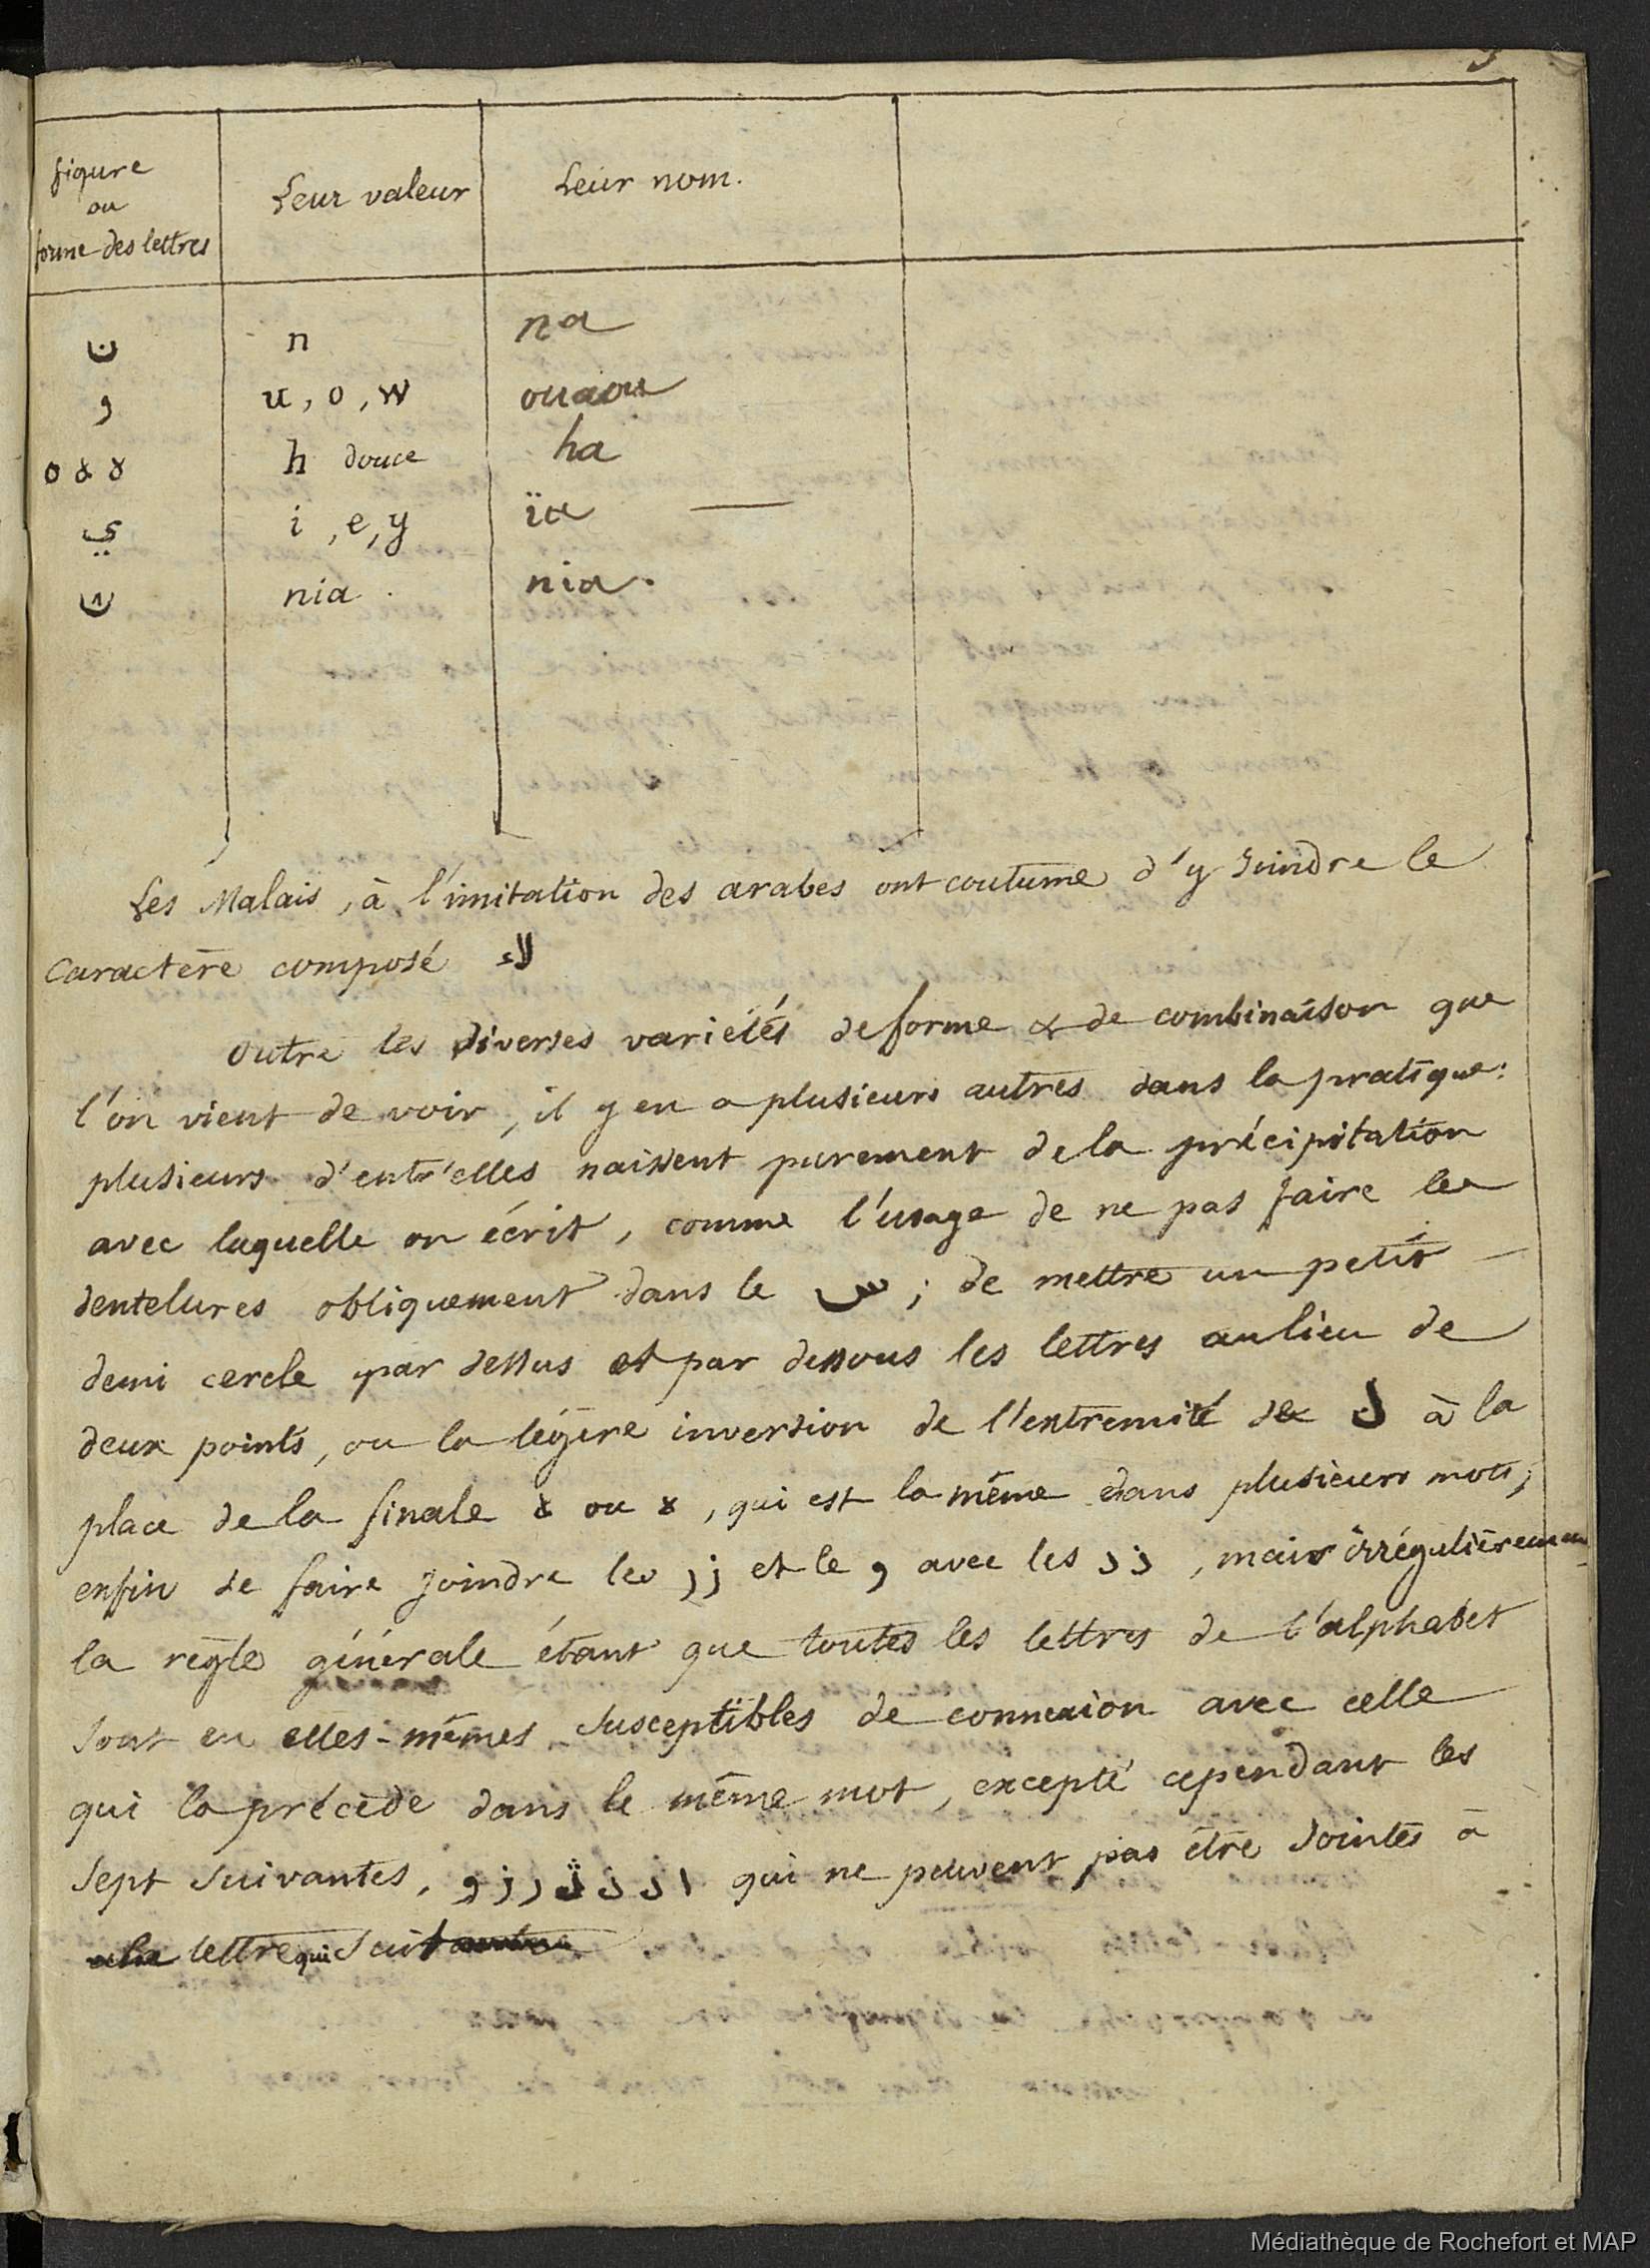 figure
ou
forme des lettres
Leur valeur
Leur nom.
ن n na
و u, o, w ouaou
ه h douce ha
ي i, e, y ïa —
nia. nia.
Les Malais, à l'imitation des arabes ont coutume d'y Joindre le
Caractère composé لاء
outre les diverses variétés de forme & de combinaison que
l'on vient de voir, il y en a plusieurs autres dans la pratique:
plusieurs d'entr'elles naissent purement de la précipitation
avec laquelle on écrit, comme l'usage de ne pas faire les
dentelures obliquement dans le س; de mettre un petit
demi cercle par dessus et par dessous les lettres au lieu de
deux points, ou la légère inversion de l'extremité de à la
place de la finale ou , qui est la même dans plusieurs mots;
enfin de faire joindre les ر ز et le و avec les د ذ, mais irrégulièrement
la règle générale étant que toutes les lettres de l'alphabet
sont en elles-mêmes susceptibles de connexion avec celle
qui la précède dans le même mot, excepté cependant les
Sept suivantes, qui ne peuvent pas être Jointes à
la lettre qui suit
Médiathèque de Rochefort et MAP